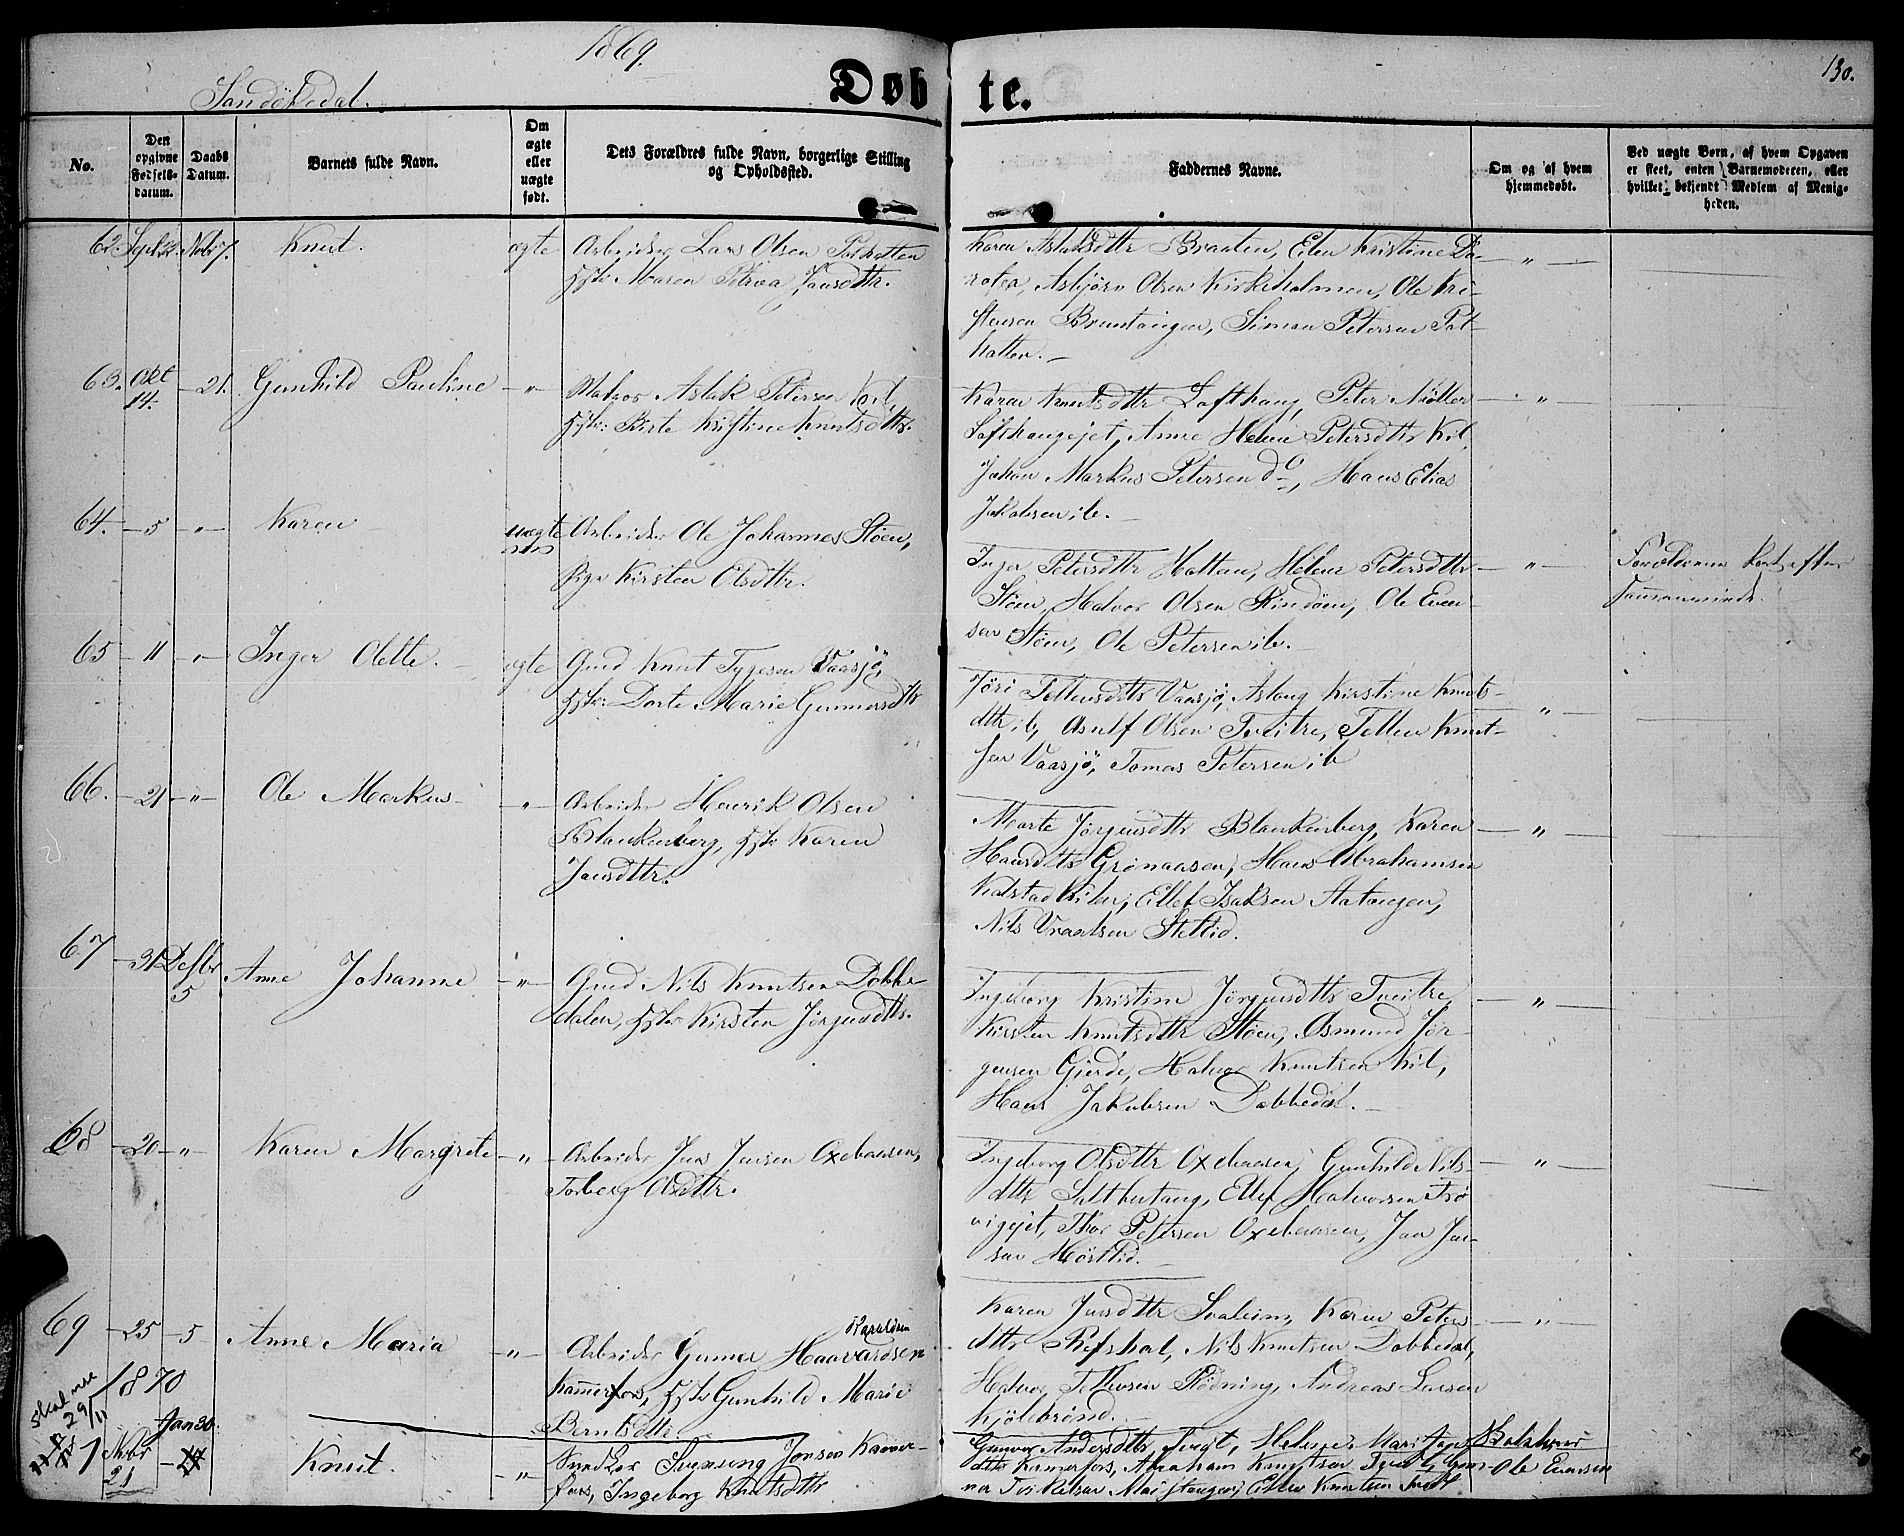 1869.
130.
Sandökedal.
Døbte.
No.
Den opgivne Fødselsdatum.
Daabs Datum.
Barnets fulde Navn.
Om ægte eller uægte født.
Dets Forældres fulde Navn, borgerlige Stilling og Opholdssted.
Faddernes Navne.
Om og af hvem hjemmedøbt.
Ved uægte Børn, af hvem Opgaven er skeet, enten Barnemoderen, eller hvilket bekjendt Medlem af Menigheden.
62. Septbr Novbr 7. Knut. ægte Arbeider Lars Olsen Pothatten
Hst: Maren Petrea Jansdttr.
Karen Aslaksdttr Braaten, Elen Kristine Do-
rotea, Asbjørn Olsen Kirkeholmen, Ole Kri-
stensen Bruntangen, Simon Petersen Pot-
hatten.
63. Okt 14. - 21. Gunhild Pauline - " - Matros Aslak Petersen Kil,
Hst: Birte Kristine Knutsdttr.
Karen Knutsdttr Lofthaug, Peter Møller
Lofthaugejet, Anne Helene Petersdttr Kil,
Johan Markus Petersen do, Hans Elias
Jakobsen ib.
64. - 5 - " - Karen uægte Arbeider Ole Johannes Støen,
Pige Kirsten Olsdttr.
Inger Petersdttr Hatten, Helene Petersdttr
Støen, Halvor Olsen Rindøen, Ole Even-
sen Støen, Ole Petersen ib.
Forældrenes
65 - 11 - " - Inger Olette. ægte Gmd Knut Tygesen Vaasjø,
Hst: Dorte Marie Gunnersdtr
Jøri Tellefsdttr Vaasjø, Aslaug Kirstine Knuts-
dttr ib, Asulf Olsen Tveitre, Tellev Knut-
sen Vaasjø, Tomas Petersen ib
66. - 21 - " - Ole Markus - " - Arbeider Henrik Olsen
Blankenberg, Hst: Karen
Jansdttr.
Marte Jørgensdttr Blankenberg, Karen
Hansdttr Grønaasen, Hans Abrahamsen
Kalstadkilen, Ellef Isaksen Aatangen,
Nils Vraalsen Stellid.
67 - 31 Desbr 5 Anne Johanne - " - Gmd Nils Knutsen Dobbe-
dalen, Hst: Kirsten Jørgensdttr.
Ingeborg Kristine Jørgensdttr Tveitre,
Kirsten Knutsdttr Støen, Osmund Jør-
gensen Gjerde, Halvor Knutsen Kil,
Hans Jakobsen Dobbedal.
68 - 20 - " - Karen Margrete - " - Arbeider Jens Jensen Oxebaasen,
Torberg Olsdttr.
Ingeborg Olsdttr Oxebaasen, Gunhild Nils-
dttr Saltbutang, Ellef Halvorsen Frø
vigejet, Thor Petersen Oxebaasen, Jan Jan-
sen Høstlid.
69 - 25 - 5 Anne Maria - " - Arbeider Gunner Haavardsen
Kammerfos, Hst: Gunhild Marie
Berntsdttr
Karen Jensdttr Svaleim, Karen Peters-
dttr Refshal, Nils Knutsen Dobbedal,
Halvor Tellevsen Rødning, Andreas Larsen
Kjølebrønd.
1870
skal se
29/11
1 Novbr 21 Jan 30. Knut - " -
Svenung Jonsen Kammer-
fos, Ingeborg Knutsdttr
Gunvor Andersdttr Tveit, Helene Marie
dttr Kamerfos, Abraham Knutsen Tveit,
Knutsen Tveit
Ole Evensen